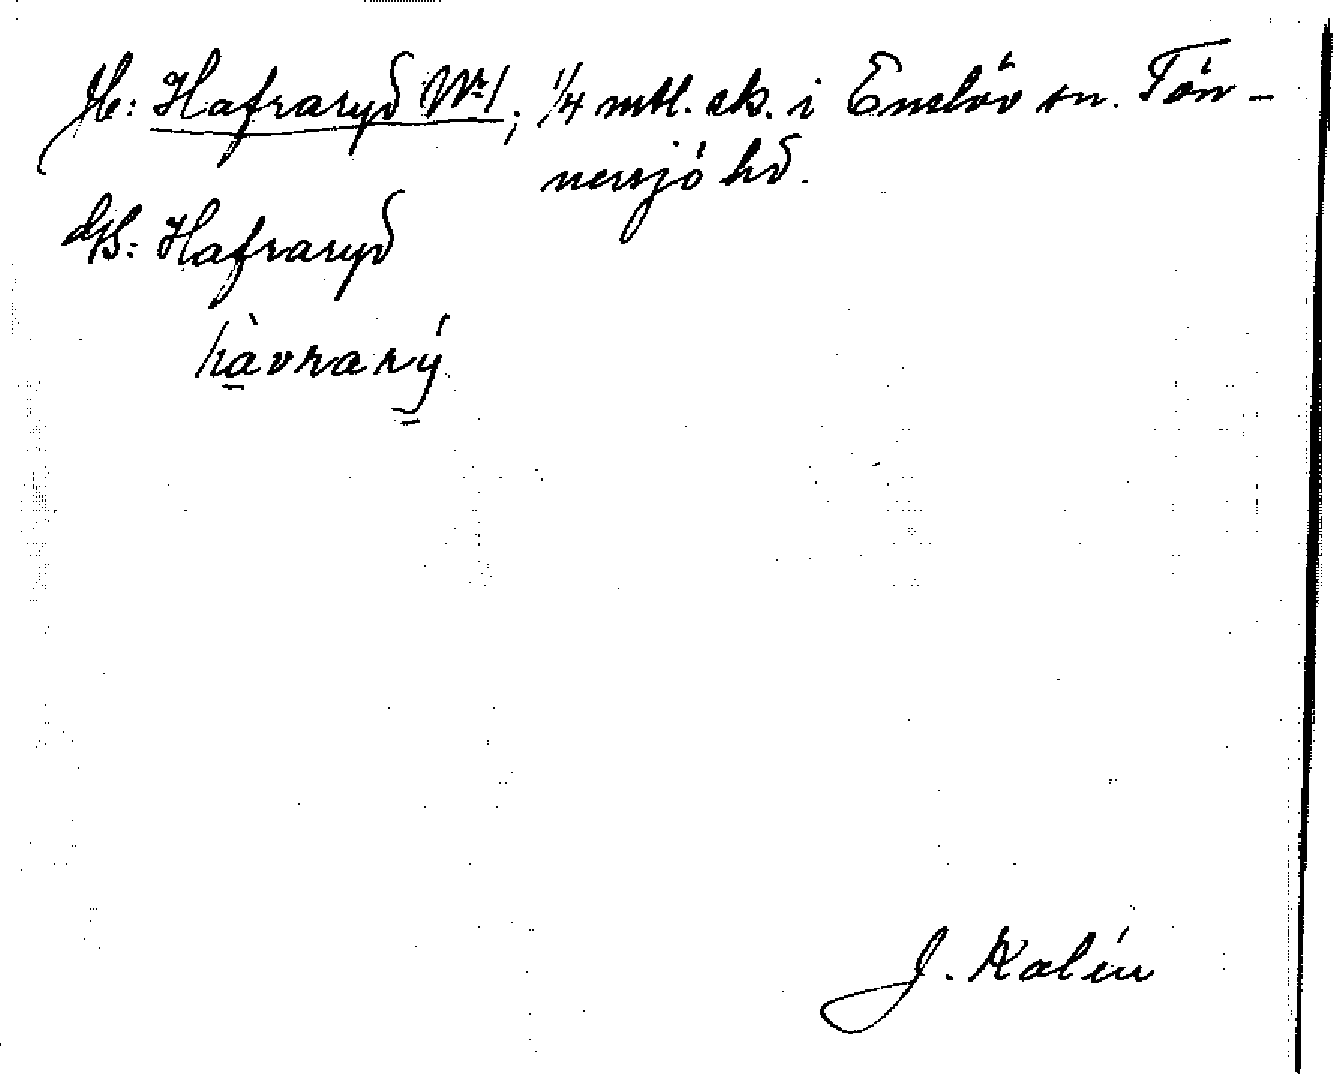 Jb: Hafraryd No 1; 1/4 mtl. sk. i Enslöv sn. Tön-
nersjö hd.
GB: Hafraryd
hàvrarý
J. Kalén